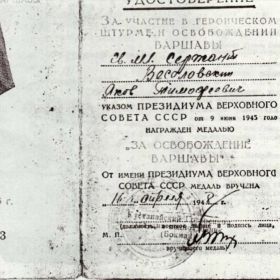 УДОСТОВЕРЕНИЕ
ЗА УЧАСТИЕ В ГЕРОИЧЕСКОМ
ШТУРМЕ И ОСВОБОЖДЕНИИ
ВАРШАВЫ
Гв. Мл. Сержант
Весоловский
Яков Тимофеевич
УКАЗОМ ПРЕЗИДИУМА ВЕРХОВНОГО
СОВЕТА СССР от 9 июня 1945 года
НАГРАЖДЕН МЕДАЛЬЮ
„ЗА ОСВОБОЖДЕНИЕ
ВАРШАВЫ“
От имени ПРЕЗИДИУМА ВЕРХОВНОГО
СОВЕТА СССР МЕДАЛЬ ВРУЧЕНА
16 апреля 194 г.
(должность, воинское звание и подпись лица,
М. П.
вручившего медаль)